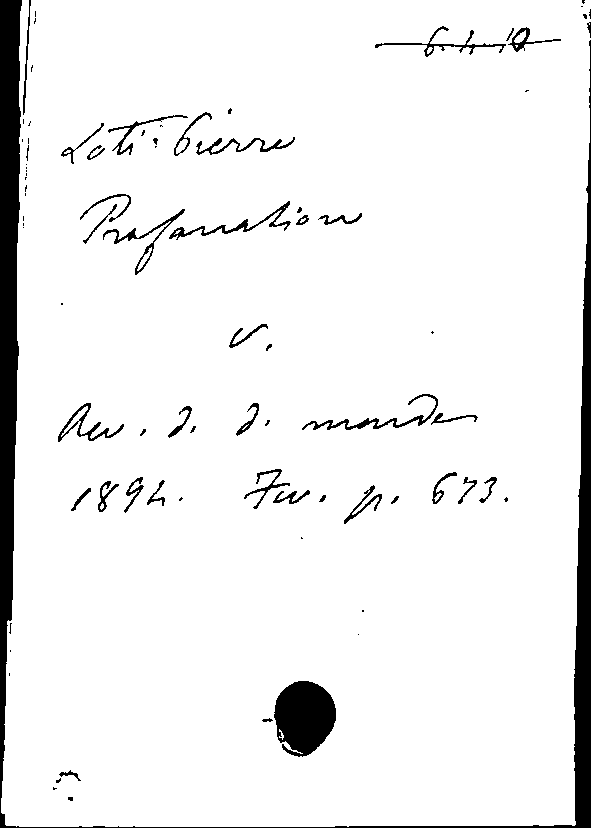 6.4.10
Loti Pierre
Profanation
v.
Rev. d. d. mondes
1894. Fev. p. 673.